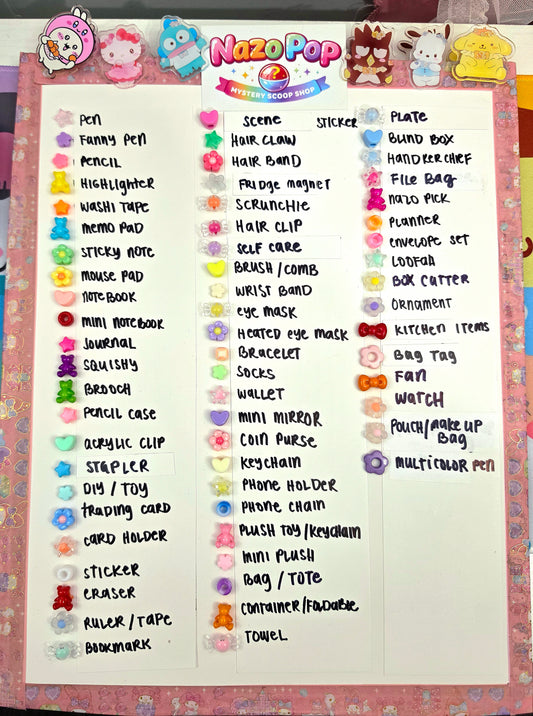 NazoPop
MYSTERY SCOOP SHOP
Pen
Fanny Pen
Pencil
Highlighter
Washi Tape
Memo Pad
Sticky Note
Mouse Pad
Notebook
Mini Notebook
Journal
Squishy
Brooch
Pencil Case
Acrylic Clip
Stapler
DIY / Toy
Trading Card
Card Holder
Sticker
Eraser
Ruler / Tape
Bookmark
Scene Sticker
Hair Claw
Hair Band
Fridge Magnet
Scrunchie
Hair Clip
Self Care
Brush / Comb
Wrist Band
Eye Mask
Heated Eye Mask
Bracelet
Socks
Wallet
Mini Mirror
Coin Purse
Keychain
Phone Holder
Phone Chain
Plush Toy/Keychain
Mini Plush
Bag / Tote
Container/Foldable
Towel
Plate
Blind Box
Handkerchief
File Bag
Nazo Pick
Planner
Envelope Set
Loofah
Box Cutter
Ornament
Kitchen Items
Bag Tag
Fan
Watch
Pouch/Make Up
Bag
Multicolor Pen